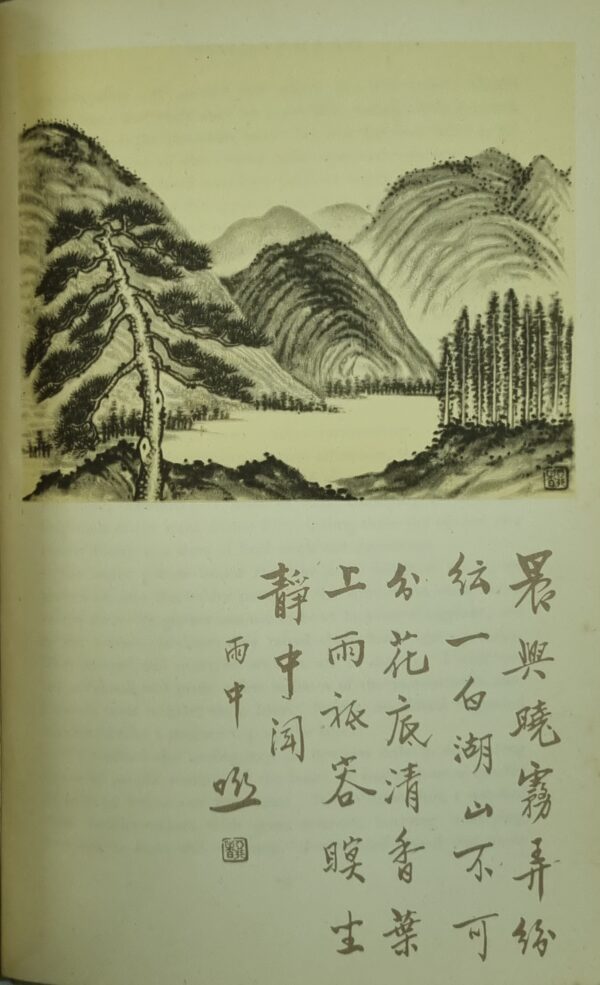 晨興曉霧弄紛
紜一白湖山不可
分花底清香葉
上雨祗容瞑坐
靜中聞
雨中